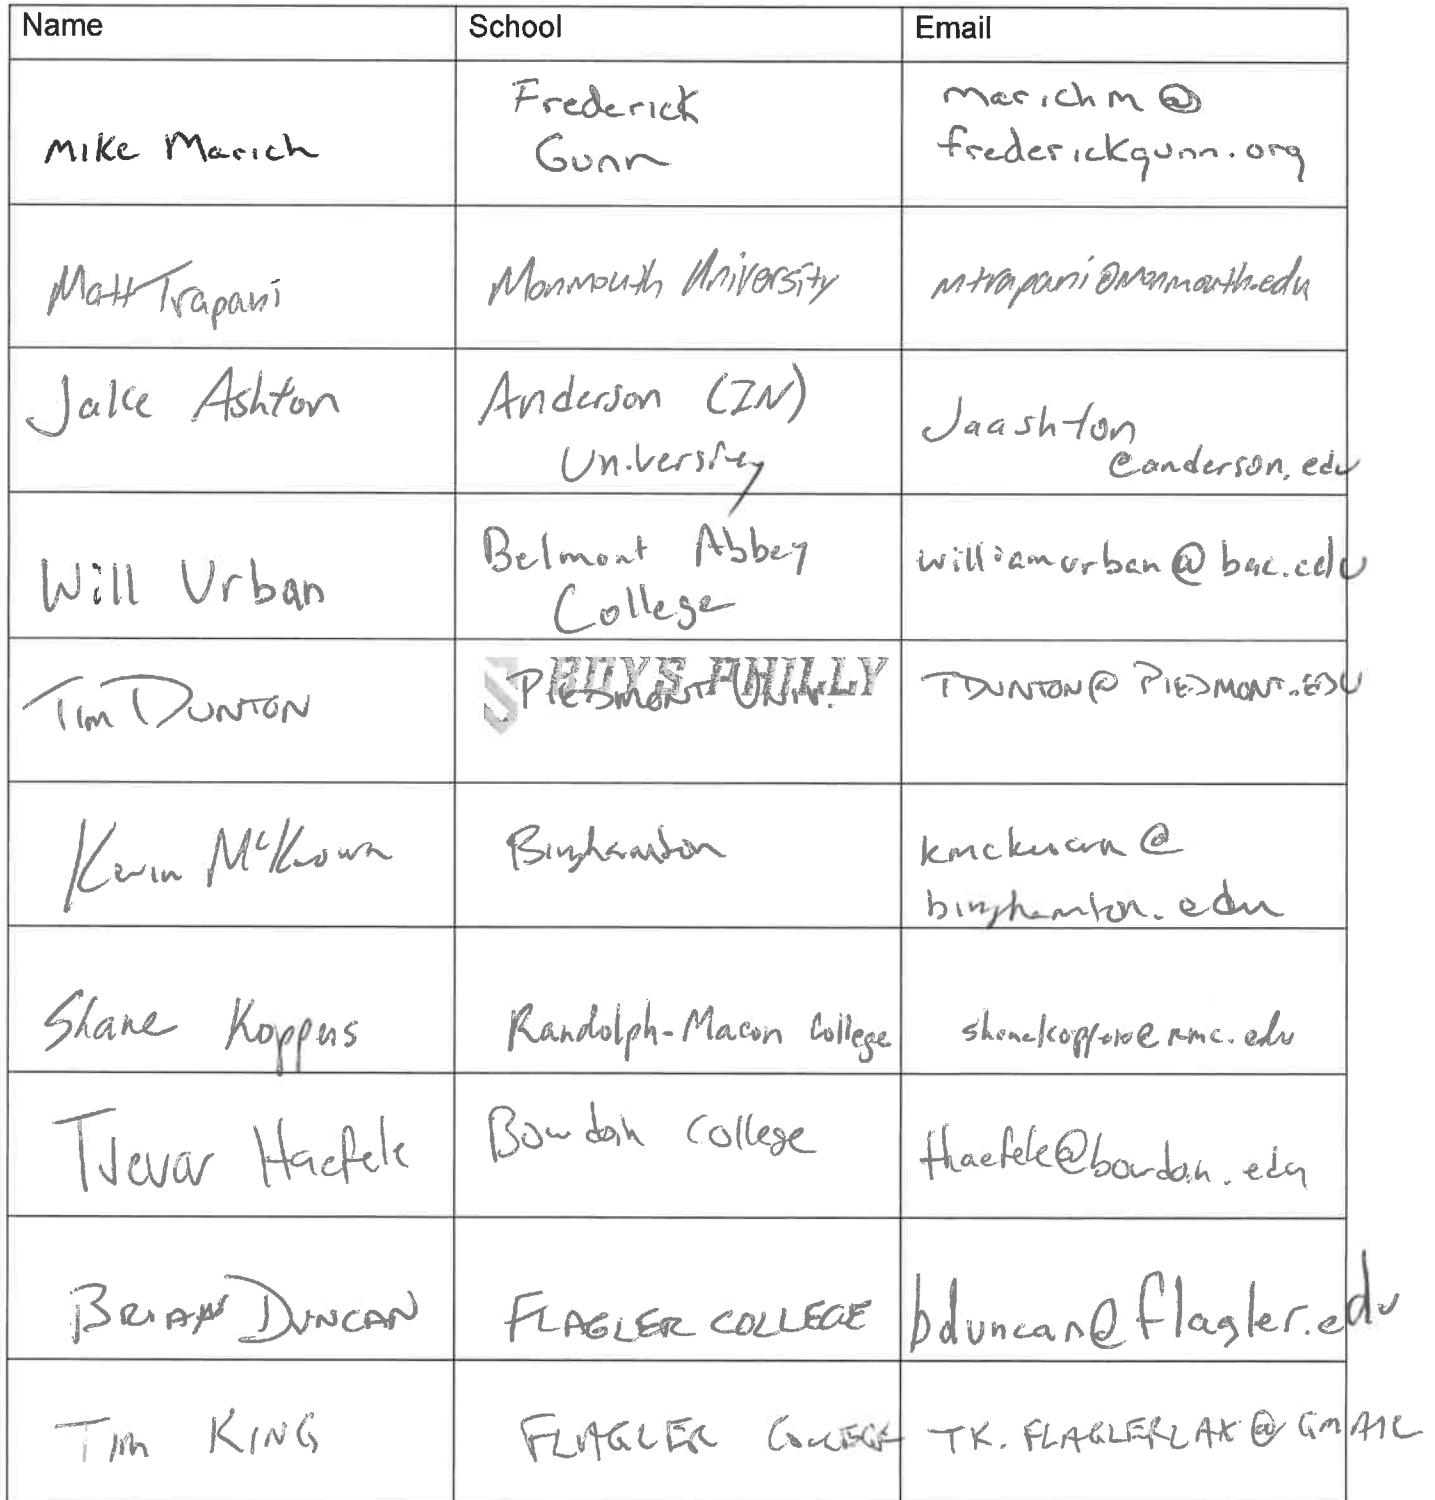 Name School Email
Mike Marich
Frederick
Gunn
marichm@
frederickgunn.org
Matt Trapani Monmouth University mtrapani@monmouth.edu
Jake Ashton
Anderson (IN)
University
Jaashton
@anderson.edu
Will Urban
Belmont Abbey
College
williamurban@bac.edu
Tim Dunton
BOYS PHILLY
PIEDMONT UNIV.
TDUNTON@PIEDMONT.EDU
Kevin McKeown
Binghamton
kmckeown@
binghamton.edu
Shane Koppers Randolph-Macon College @rmc.edu
Trevor Haefele Bowdoin College thaefele@bowdoin.edu
BRIAN DUNCAN FLAGLER COLLEGE bduncan@flagler.edu
Tim KING FLAGLER COLLEGE TK.FLAGLERLAX@GMAIL